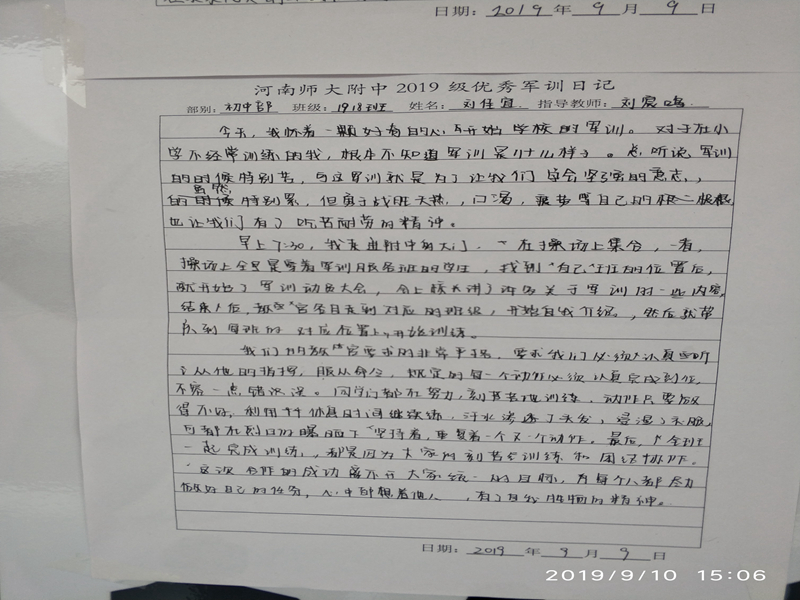 日期：2019 年 9 月 9 日
河南师大附中 2019 级优秀军训日记
部别：初中部 班级：1918班 姓名：刘佳宜 指导教师：刘震鸣
今天，我怀着一颗好奇的心开始学校的军训。对于在小
学不经常训练的我，根本不知道军训是什么样子。总听说军训
的时候特别苦，与这军训就是为了让我们学会坚强的意志，
虽然
的时候特别累，但勇于战胜天热，口渴，疲劳等自己的
也让我们有了吃苦耐劳的精神。
早上7:30，我走进附中的大门，在操场上集合，一看，
操场上全是穿着军训服各班的学生，找到"自己"班的位置后，
就开始了军训动员大会，会上校长讲了许多关于军训的一些内容，
结束后，教官各自走到对应的班级，开始自我介绍，然后就带
队到每班的对应位置上，开始训练。
我们的教官要求的非常严格，要求我们必须认真听
从他的指挥，服从命令，规定的每一个动作必须认真完成到位，
不容一点错误。同学们都在努力，刻苦训练，动作只要做
得不好，利用休息时间继续练，汗水渗透了头发，浸湿了衣服，
可都在烈日的曝晒下坚持着，重复着一个又一个动作。最后，全班
一起完成训练，都是因为大家的刻苦训练和团结协作。
这次合作的成功离不开大家统一的目标，
做好自己的任务，心中都想着他人，有了自我的精神。
日期：2019 年 9 月 9 日
2019/9/10 15:06